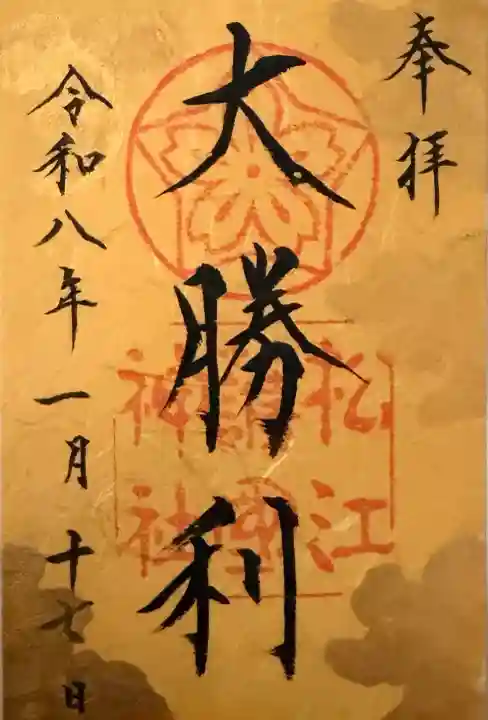 奉拝
大勝利
松江
護國
神社
令和八年一月十七日